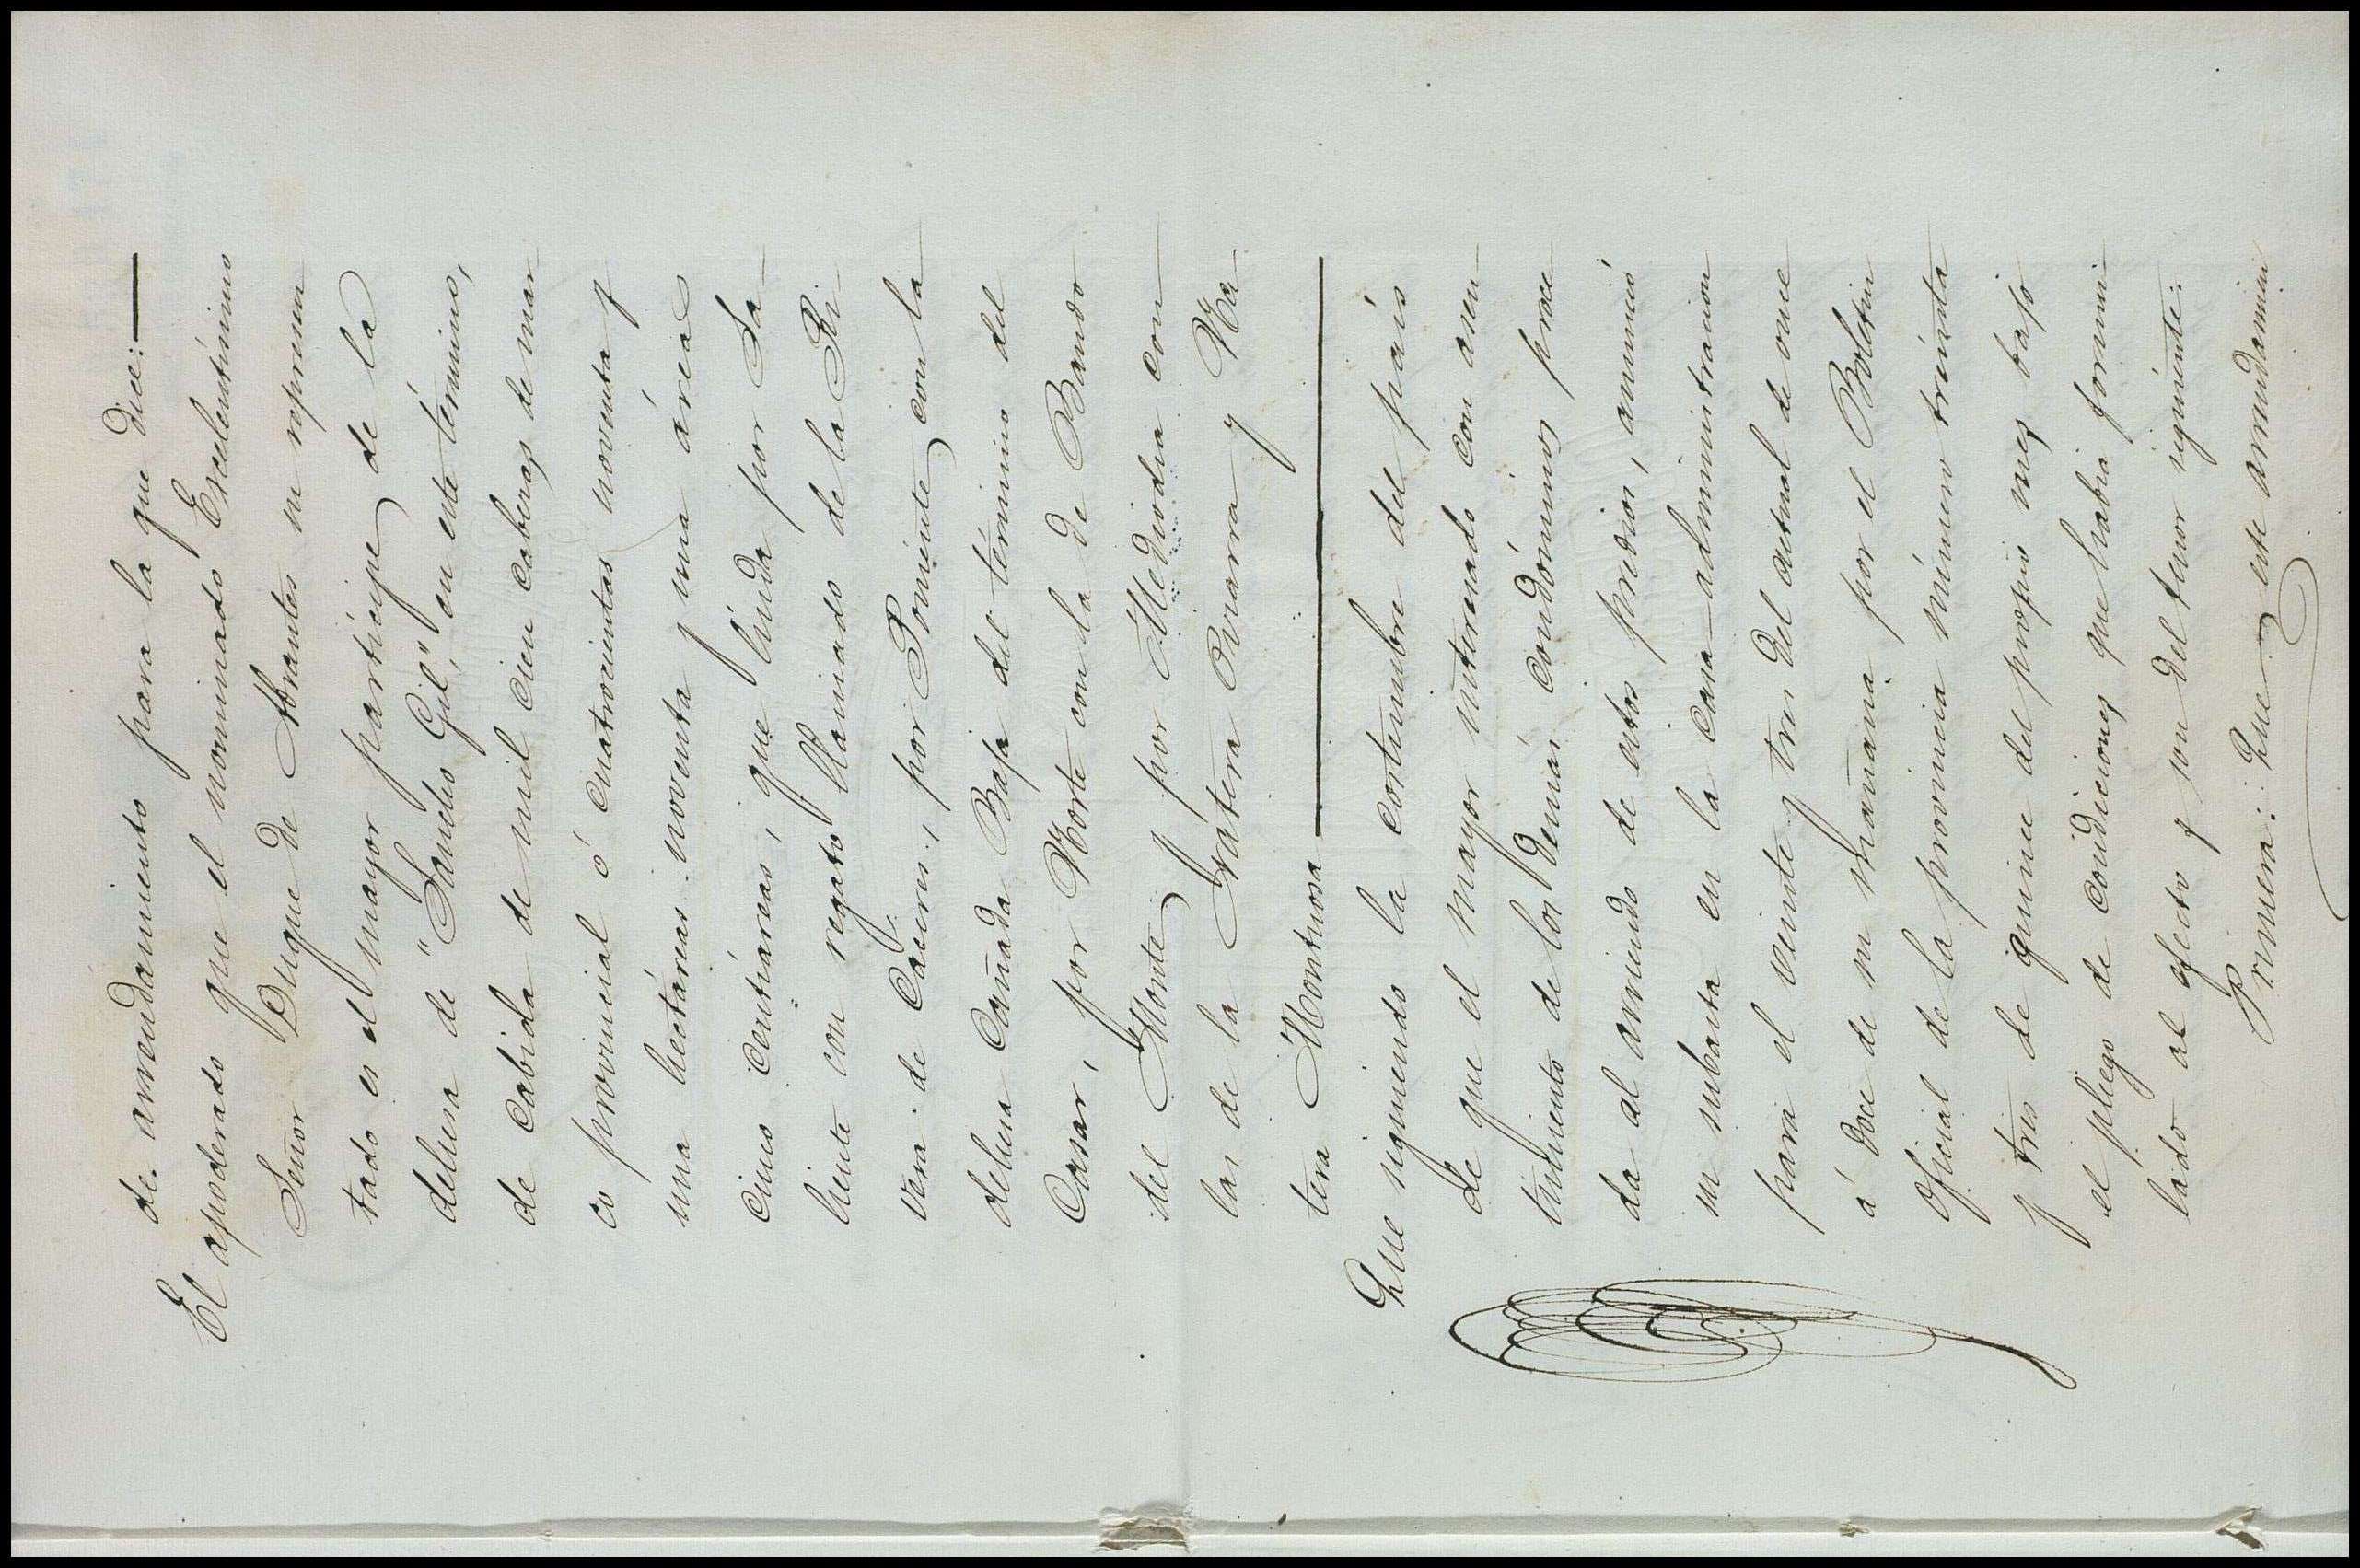 de arrendamiento para la que dice:
El apoderado que el nominado Escelentísimo
Señor Duque de Abrantes su represen
tado es el mayor partícipe de la
dehesa de "Sancho Gil", en este término,
de cabida de mil cien cabezas de mar
co provincial ó cuatrocientas noventa y
una hectáreas noventa y una áreas
cinco centiáreas, que linda por Sa-
liente con regato llamado de la Ri
vera de Cáceres, por Poniente con la
dehesa Cañada Baja del término del
Casar, por Norte con la de Bando
del Monte y por Mediodia con
las de la Gratera Ovarra y Ga
tera Montuosa
Que siguiendo la costumbre del pais
de que el mayor interesado con asen
timiento de los demas condóminos proce
da al arriendo de estos predios, anunció
su subasta en la casa-administracion
para el veinte y tres del actual de once
á doce de su mañana por el Boletin
Oficial de la provincia número treinta
y tres de quince del propio mes bajo
el pliego de condiciones que habia formu-
lado al efecto y son del tenor siguiente:
Primera: Que este arrendamien